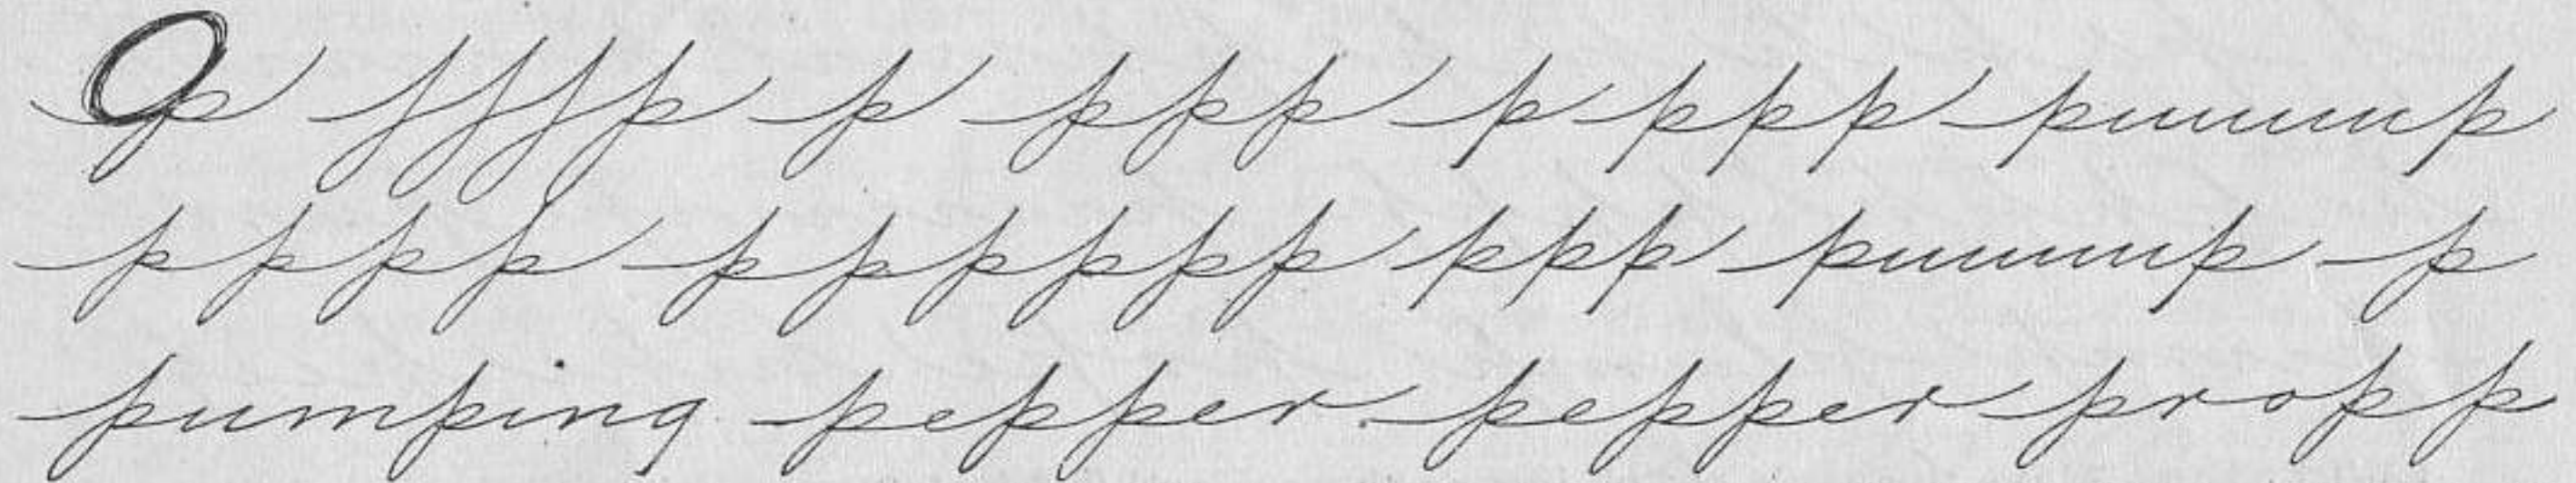 p p p ppp p ppp puuuup
pppp pppppp ppp puuuup p
pumping pepper pepper propp